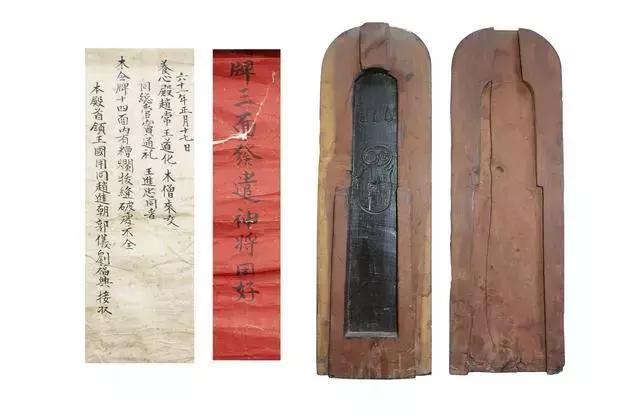 六十一年正月十七日
養心殿趙常王道化 木僧來交
同總管 通禮 王進忠同
木令牌十四面內有糟爛接縫破壞不全
本殿首領王國用同趙進朝郭儀劉福興接收
牌三面發遣神將用好